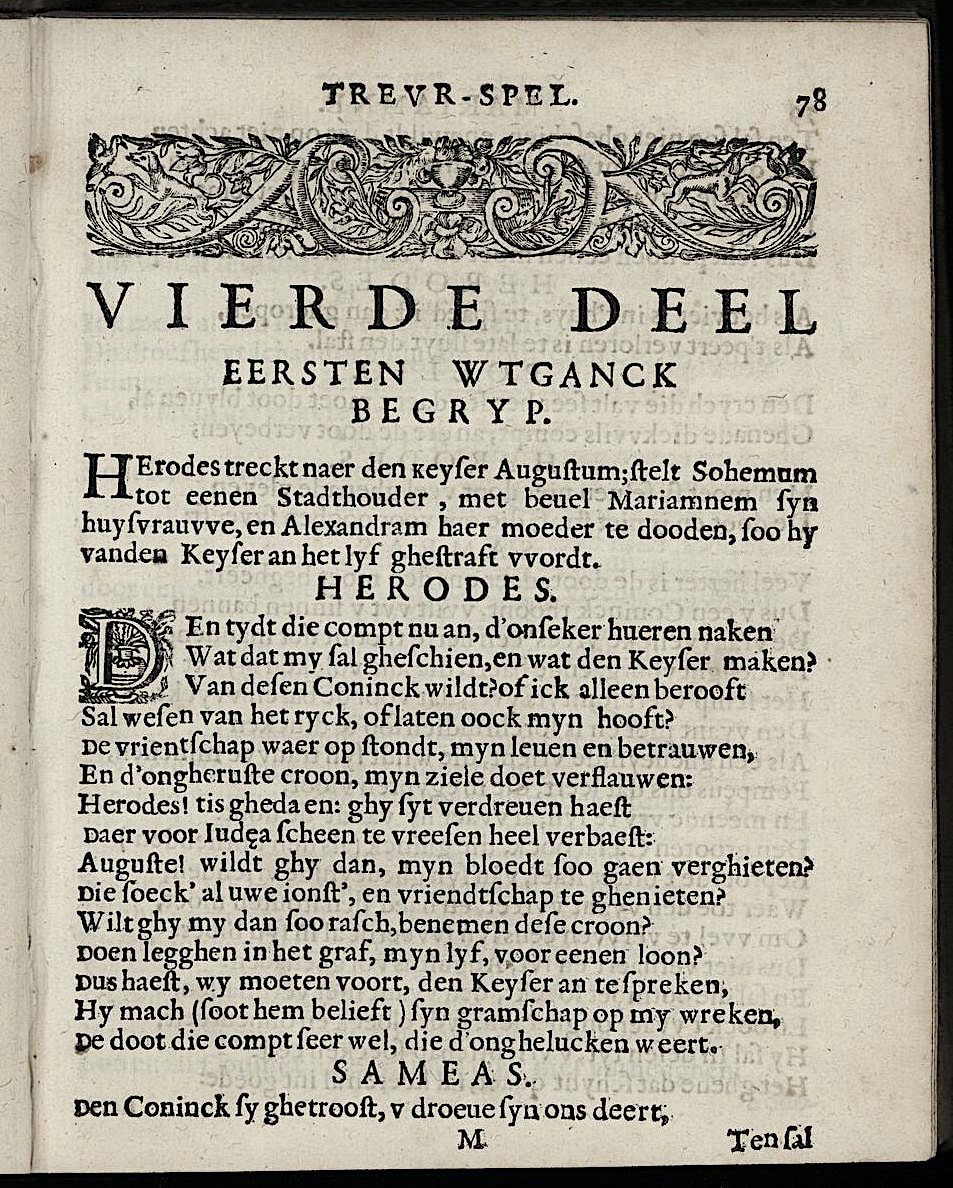 TREVR-SPEL. 78
VIERDE DEEL
EERSTEN WTGANCK
BEGRYP.
HErodes treckt naer den Keyſer Auguſtum; ſtelt Sohemum
tot eenen Stadthouder, met beuel Mariamnem ſyn
huyſvrauvve, en Alexandram haer moeder te dooden, ſoo hy
vanden Keyſer an het lyf gheſtraft vvordt.
HERODES.
DEn tydt die compt nu an, d'onſeker hueren naken
Wat dat my ſal gheſchien, en wat den Keyſer maken?
Van deſen Coninck wildt? of ick alleen berooft
Sal weſen van het ryck, of laten oock myn hooft?
De vrientſchap waer op ſtondt, myn leuen en betrauwen,
En d'ongheruſte croon, myn ziele doet verflauwen:
Herodes! tis ghedaen: ghy ſyt verdreuen haeſt
Daer voor Iudęa ſcheen te vreeſen heel verbaeſt:
Auguſte! wildt ghy dan, myn bloedt ſoo gaen verghieten?
Die ſoeck' al uwe ionſt', en vriendtſchap te ghenieten?
Wilt ghy my dan ſoo raſch, benemen deſe croon?
Doen legghen in het graf, myn lyf, voor eenen loon?
Dus haeſt, wy moeten voort, den Keyſer an te ſpreken,
Hy mach (ſoot hem belieft) ſyn gramſchap op my wreken,
De doot die compt ſeer wel, die d'onghelucken weert.
SAMEAS.
Den Coninck ſy ghetrooſt, v droeue ſyn ons deert,
M Ten ſal